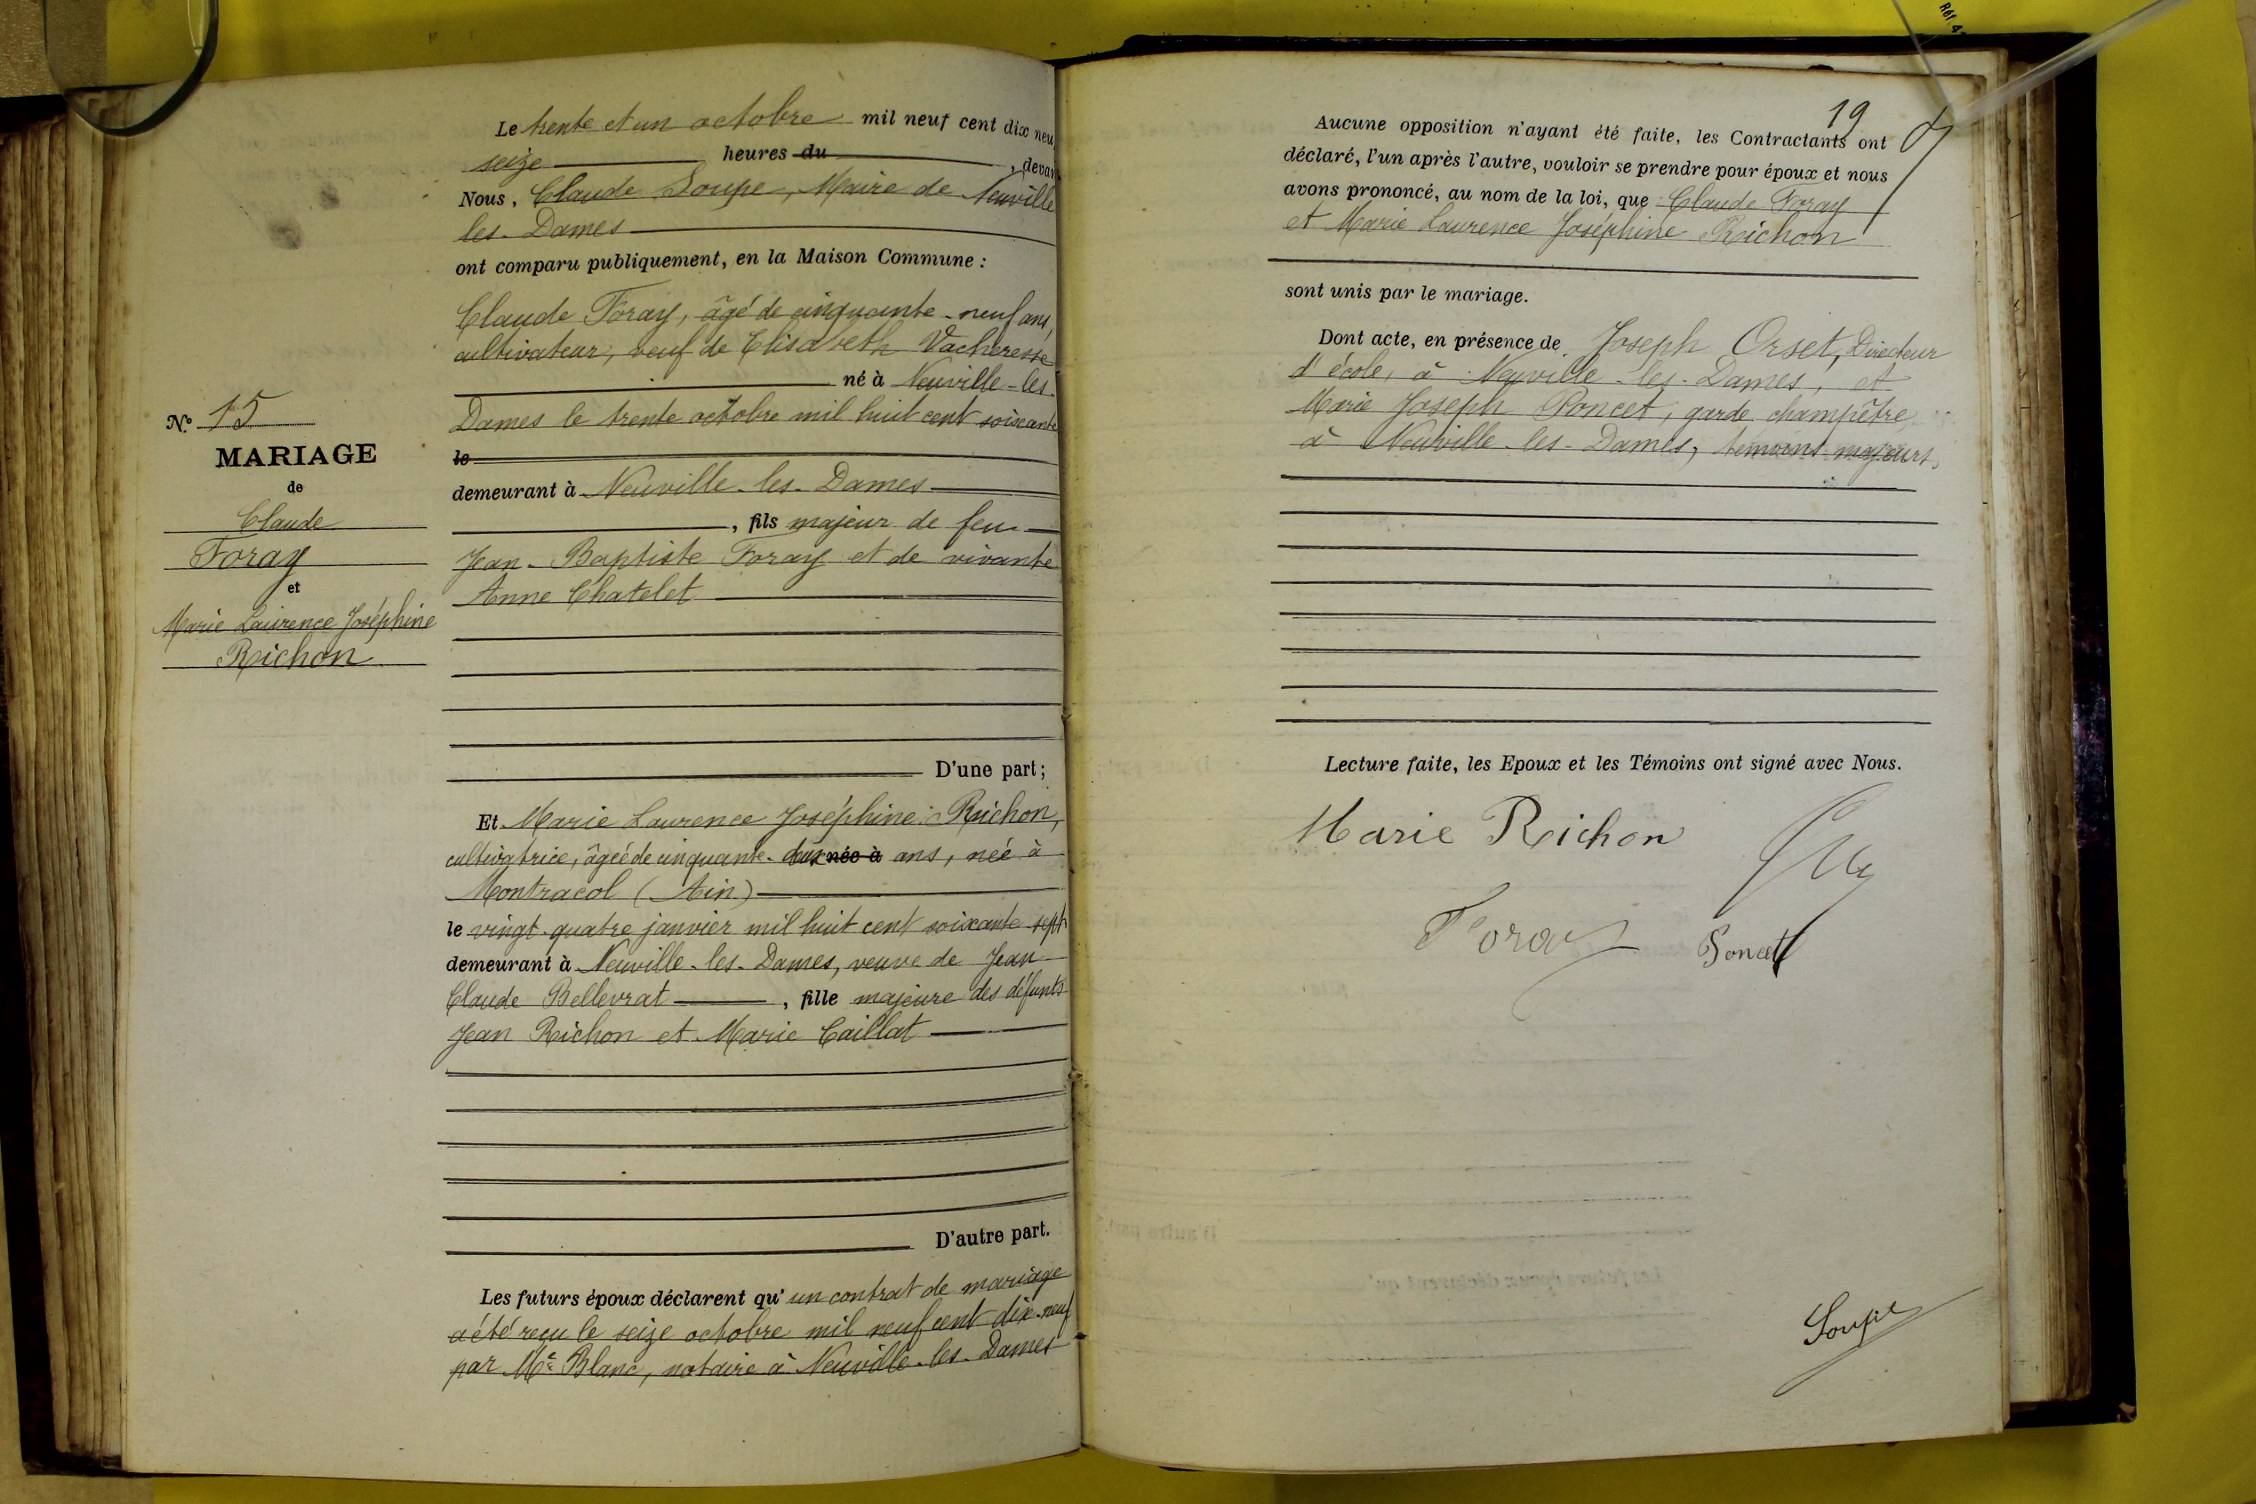 N.º 15
MARIAGE
de
Claude
Foray
et
Marie Laurence Joséphine
Richon
Le trente et un octobre mil neuf cent dix neu
seize heures du , devan
Nous, Claude Soupe, Maire de Neuville
les-Dames
ont comparu publiquement, en la Maison Commune :
Claude Foray, âgé de cinquante-neuf ans,
cultivateur, veuf de Elisabeth Vacheresse
né à Neuville-les-
Dames le trente octobre mil huit cent soixante
le
demeurant à Neuville-les-Dames
, fils majeur de feu
Jean-Baptiste Foray et de vivante
Anne Chatelet
D'une part ;
Et Marie Laurence Joséphine Richon,
cultivatrice, âgeé de cinquante-deux née à ans, neé à
Montracol (Ain)
le vingt-quatre janvier mil huit cent soixante sept
demeurant à Neuville-les-Dames, veuve de Jean
Claude Bellevrat , fille majeure des défunts
Jean Richon et Marie Caillat
D'autre part.
Les futurs époux déclarent qu' un contrat de mariage
a été reçu le seize octobre mil neuf cent dix-neuf
par Me Blanc, notaire à Neuville-les-Dames
19
Aucune opposition n'ayant été faite, les Contractants ont
déclaré, l'un après l'autre, vouloir se prendre pour époux et nous
avons prononcé, au nom de la loi, que Claude Foray
et Marie Laurence Joséphine Richon
sont unis par le mariage.
Dont acte, en présence de Joseph Orset, Directeur
d'école, à Neuville-les-Dames, et
Marie Joseph Poncet, garde champêtre
à Neuville-les-Dames, témoins majeurs,
Lecture faite, les Epoux et les Témoins ont signé avec Nous.
Marie Richon
Foray
Poncet
Soupe
Réf. 4